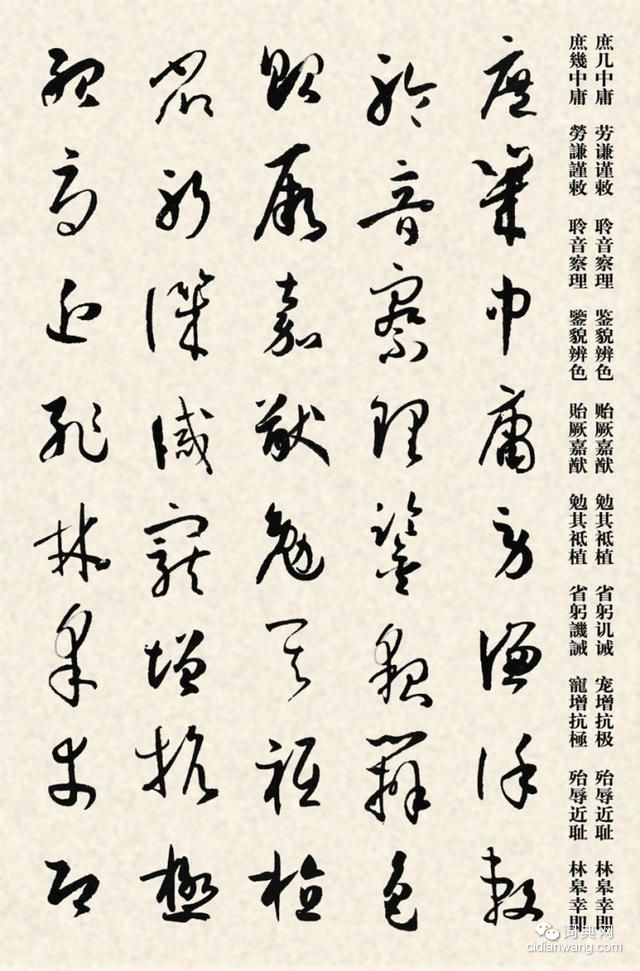 庶几中庸 劳谦谨敕 聆音察理 鉴貌辨色 贻厥嘉猷 勉其祗植 省躬讥诫 宠增抗极 殆辱近耻 林皋幸即
庶幾中庸 勞謙謹敕 聆音察理 鑒貌辨色 貽厥嘉猷 勉其祗植 省躬譏誡 寵增抗極 殆辱近耻 林皋幸即
庶幾中庸勞謙謹敕
聆音察理鑒貌辨色
貽厥嘉猷勉其祗植
省躬譏誡寵增抗極
殆辱近耻林皋幸即
词典网
cidianwang.com